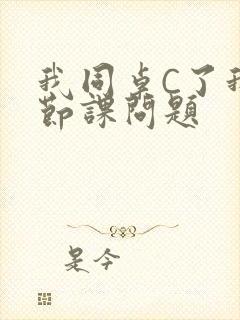 我同卓C了我
节课问题
是今